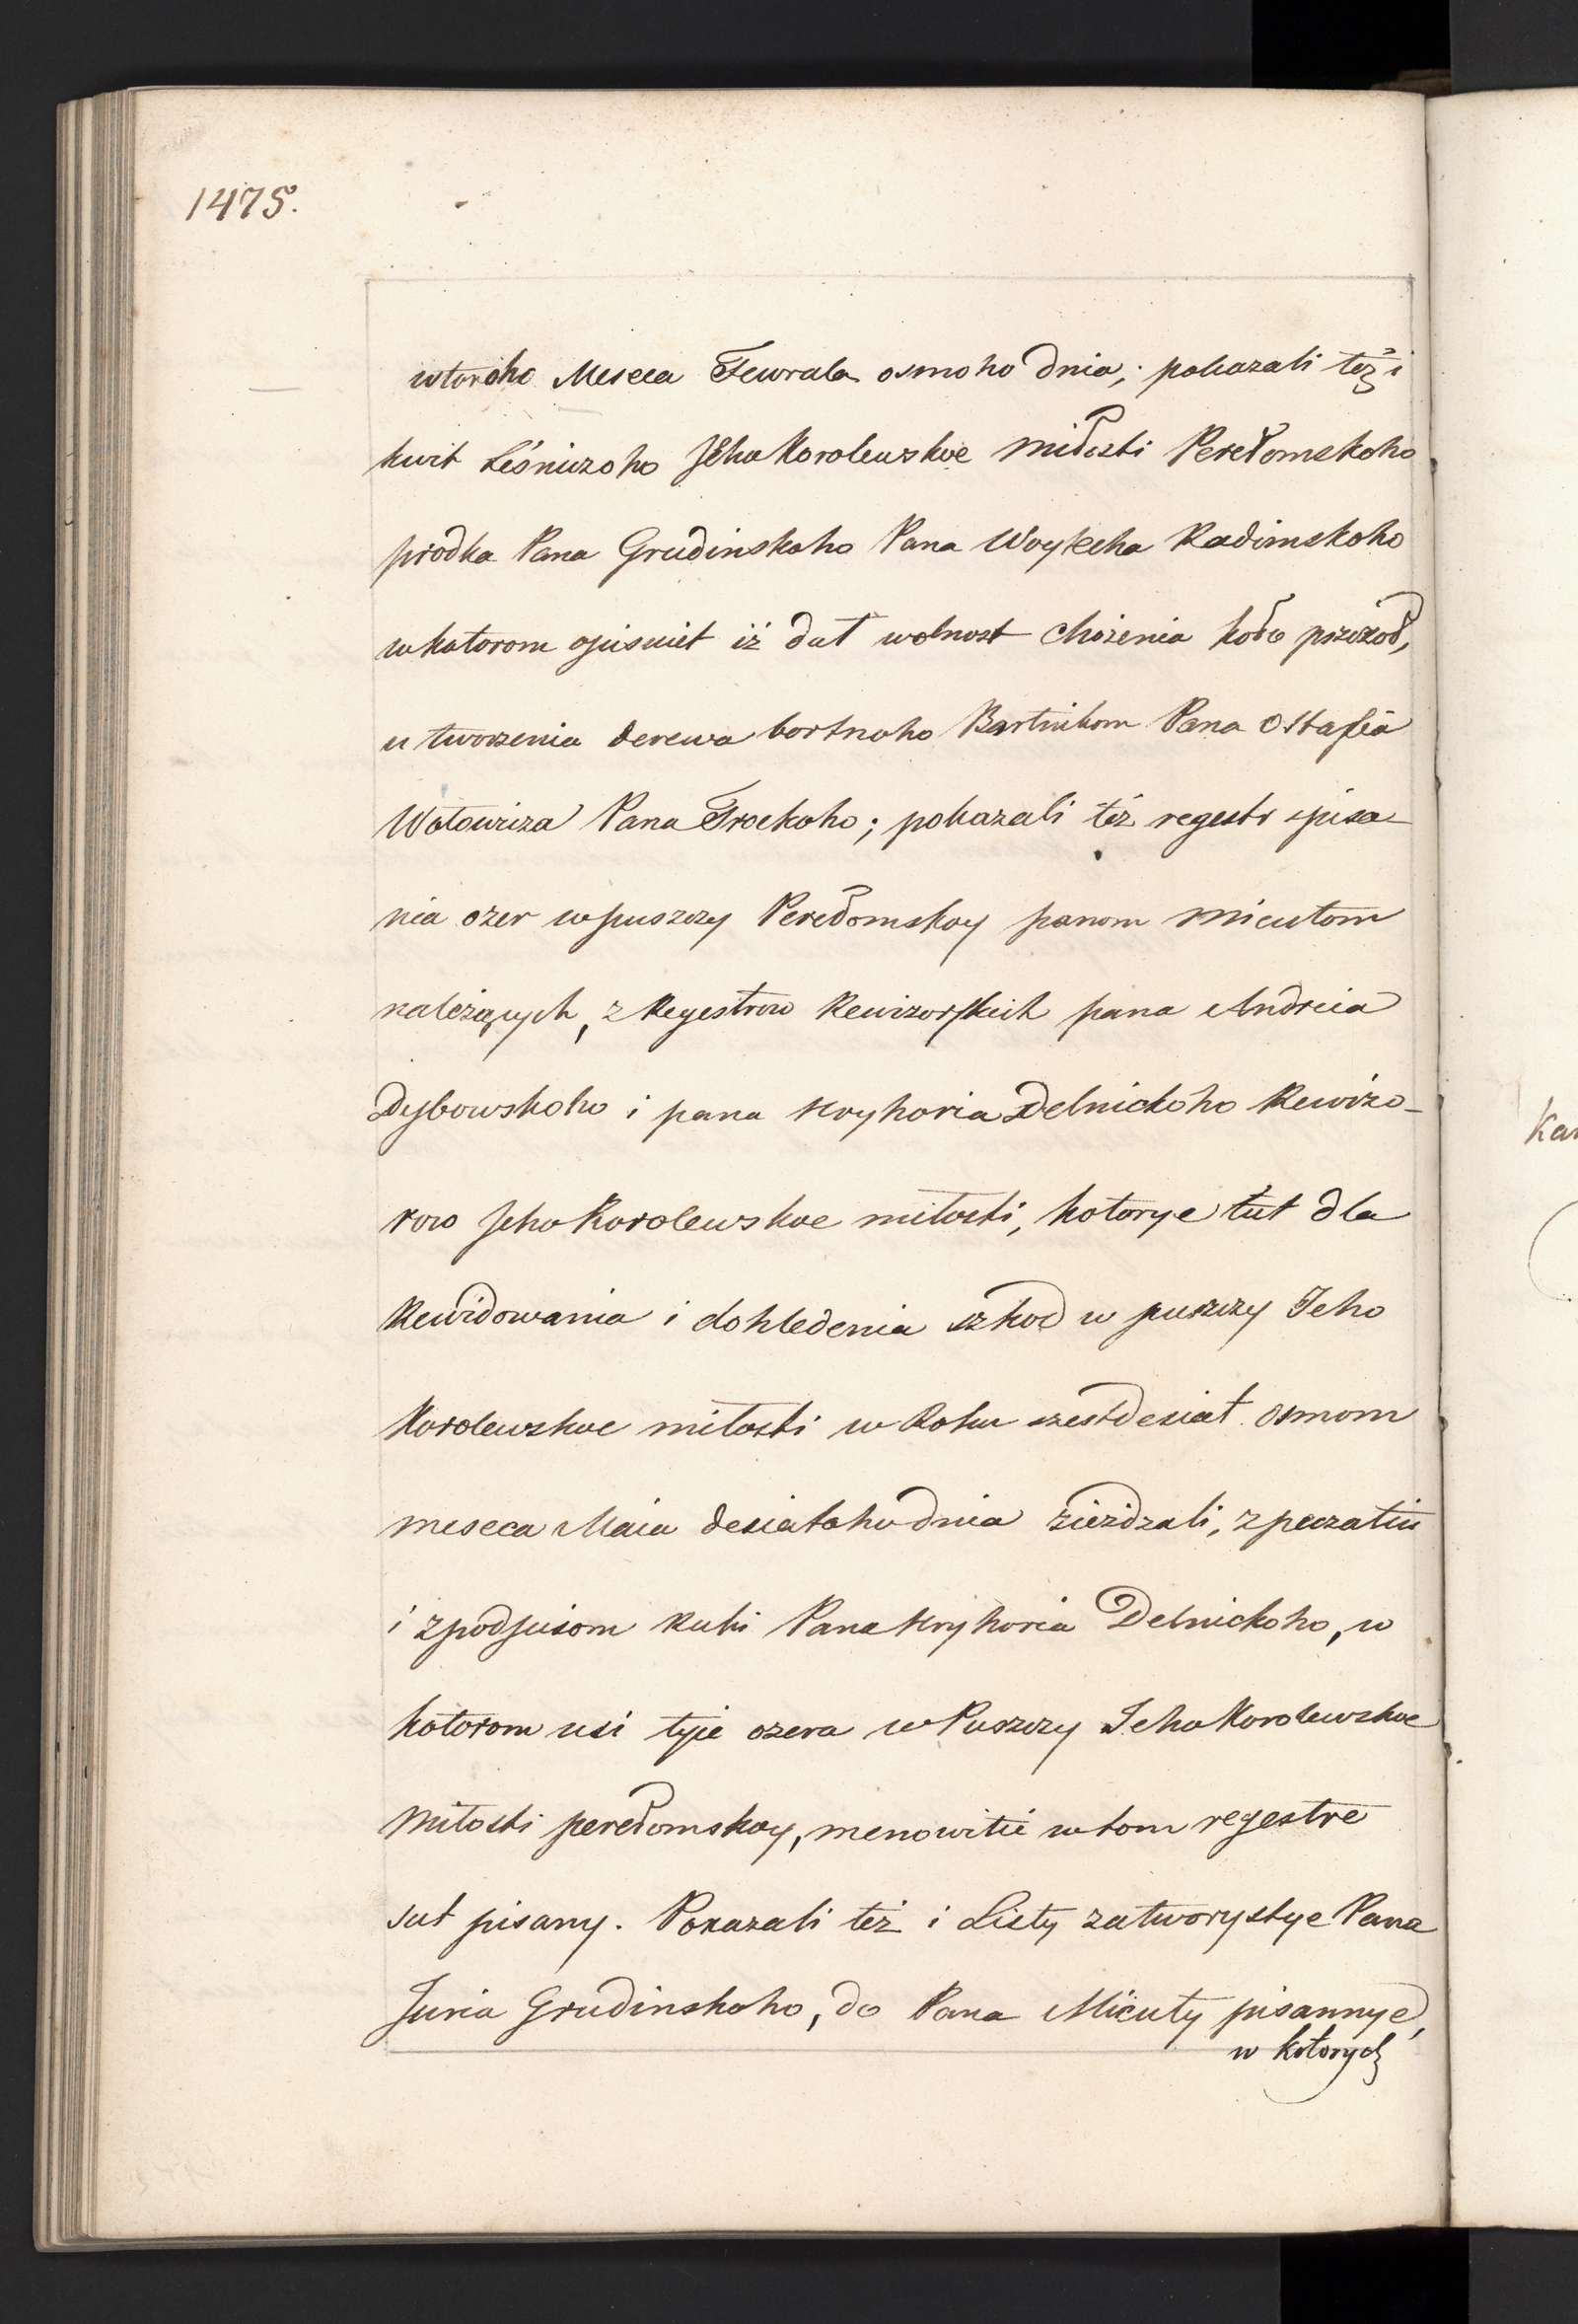 1475.
wtoroho Meseca Fewrala osmoho dnia; pokazali też i
kwit Leśniczoho Jeho Korolewskoe miłosti Perełomskoho
prodka Pana Grudinskoho Pana Woytecha Radimskoho
w kotorom opisuiet iż dał wolnost chożenia koło pszczoł,
u tworzenia derewa bortnoho Bartnikom Pana Ostafia
Wołowicza Pana Trockoho; pokazali też regestr spisa-
nia ozer w puszczy Perełomskoy panom Micutom
należączych, z Regestrow Rewizorskich pana Andreia
Dybowskoho i pana Hryhoria Delnickoho Rewizo-
row Jeho Korolewskoe miłosti, kotorye tut dla
Rewidowania i dohledenia szkod w puszczy Jeho
Korolewskoe miłosti w Roku szestdesiat osmom
meseca Maia desiatoho dnia zieżdzali, z peczatiu
i z podpisom ruki Pana Hryhoria Delnickoho, w
kotorom usi tyie ozera w Puszczy Jeho Korolewskoe
Miłosti perełomskoy, menowitie w tom regestre
sut pisany. Pokazali też i Listy zatworystye Pana
Juria Grudinskoho, do Pana Micuty pisannye,
w kotorych
Kar